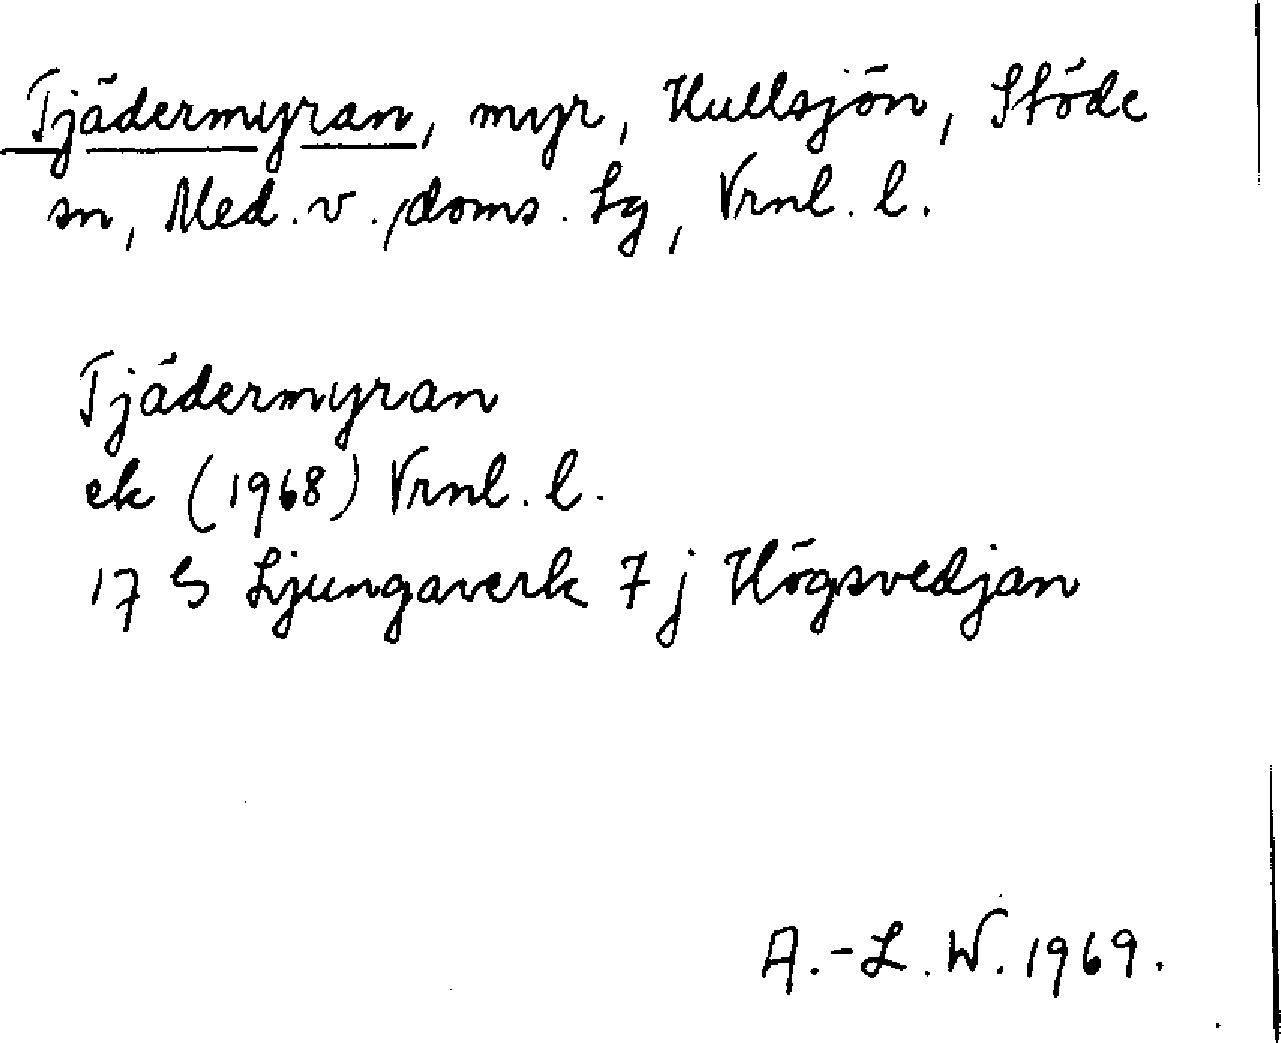 Tjädermyran, myr, Hullsjön, Stöde
sn, Med. v. doms. Lg, Vrnl. l.
Tjädermyran
ek (1968) Vrnl. l.
17 S Ljungaverk 7 j Högsvedjan
A.-L. W. 1969.